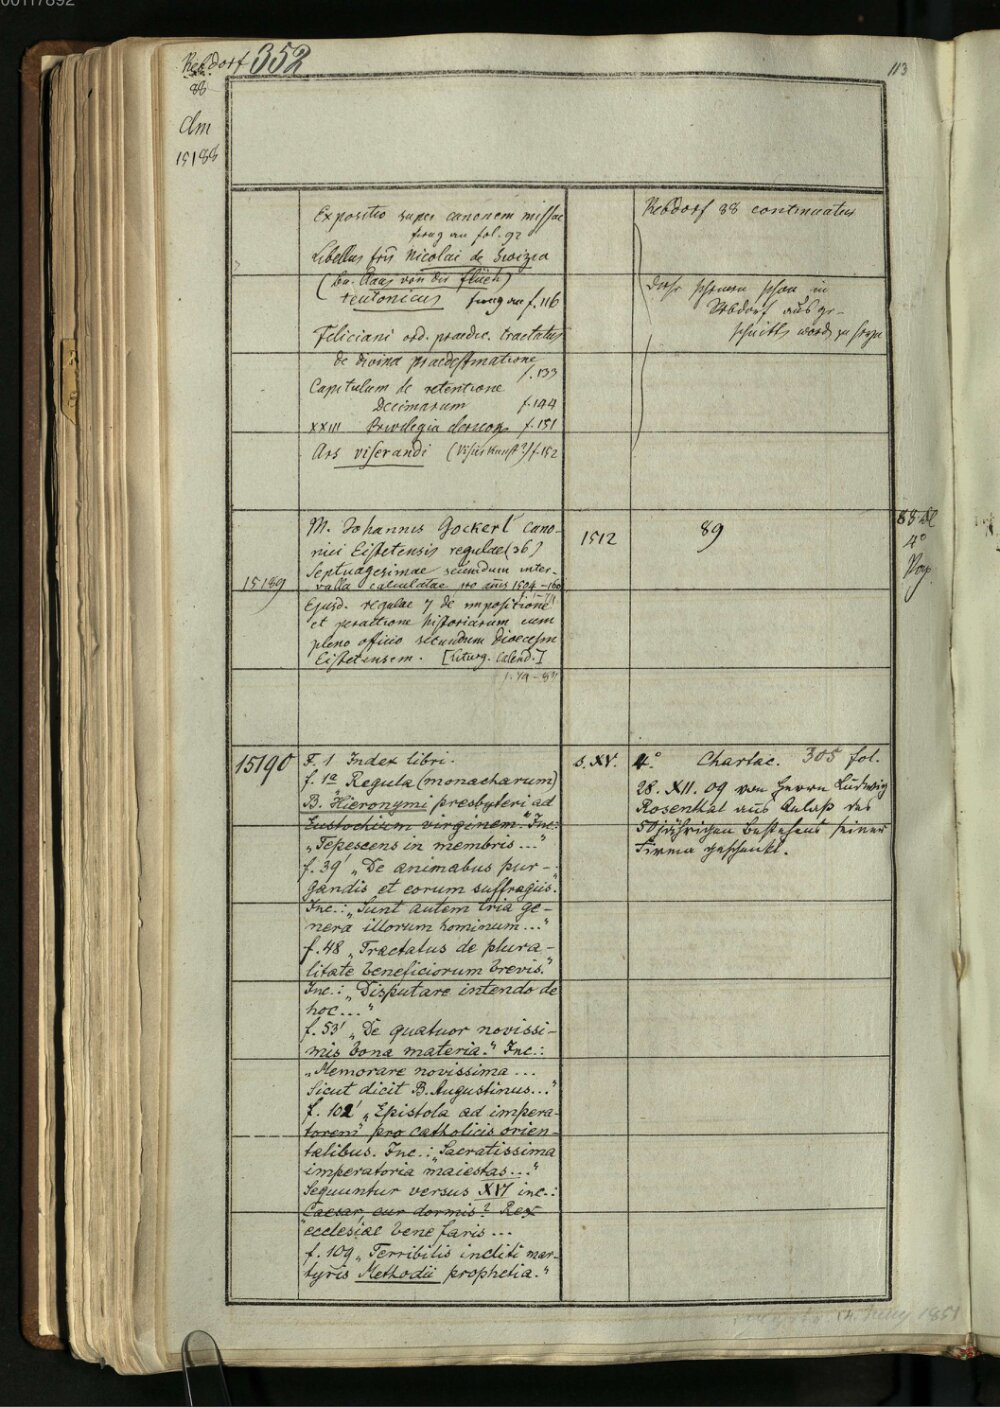 00117892
Rebdorf 352
113
88
Clm
15188
Expositio super canonem missae
fol. 92
Rebdorf 88 continuatus
Libellus fris Nicolai de Swizia
(Br. Claas von der Flüeh)
teutonicus f. 116
diese scheinen schon in
Rebdorf
Feliciani ord. praedic. tractatus
de divina praedestinatione
f. 133
Capitulum de retentione
Decimarum f. 144
XXIII Privilegia f. 151
Ars viserandi (Visirkunst?) f. 152
15189
M. Johannis Gockerl cano-
nici Eistetensis regulae (36)
Septuagesimae secundum inter-
valla calculatae pro annis 1504
1512
89
88 Bl
4°
Pap.
Ejusd. regulae 7 de impositione
et peractione historiarum cum
pleno officio secundum Dioecesim
Eistetensem. [Liturg. Calend.]
15190
F. 1 Index libri.
f. 1a „Regula (monacharum)
B. Hieronymi presbyteri ad
Eustochium virginem." Inc.:
„Tepescens in membris..."
f. 39' „De animabus pur-
gandis et eorum suffragiis."
Inc.: „Sunt autem tria ge-
nera illorum hominum..."
f. 48 „Tractatus de plura-
litate beneficiorum brevis."
Inc.: „Disputare intendo de
hoc..."
f. 53' „De quatuor novissi-
mis bona materia." Inc.:
„Memorare novissima...
Sicut dicit B. Augustinus..."
f. 102' „Epistola ad impera-
torem pro catholicis orien-
talibus. Inc.: „Sacratissima
imperatoria maiestas..."
Sequuntur versus XVI inc.:
Caesar, cur dormis? Rex
ecclesiae bene faris...
f. 109 „Terribilis incliti mar-
tyris Methodii prophetia."
s. XV.
4° Chartac. 305 fol.
28. XII. 09 von Herrn Ludwig
Rosenthal aus Anlaß des
50jährigen Bestehens seiner
Firma geschenkt.
1851